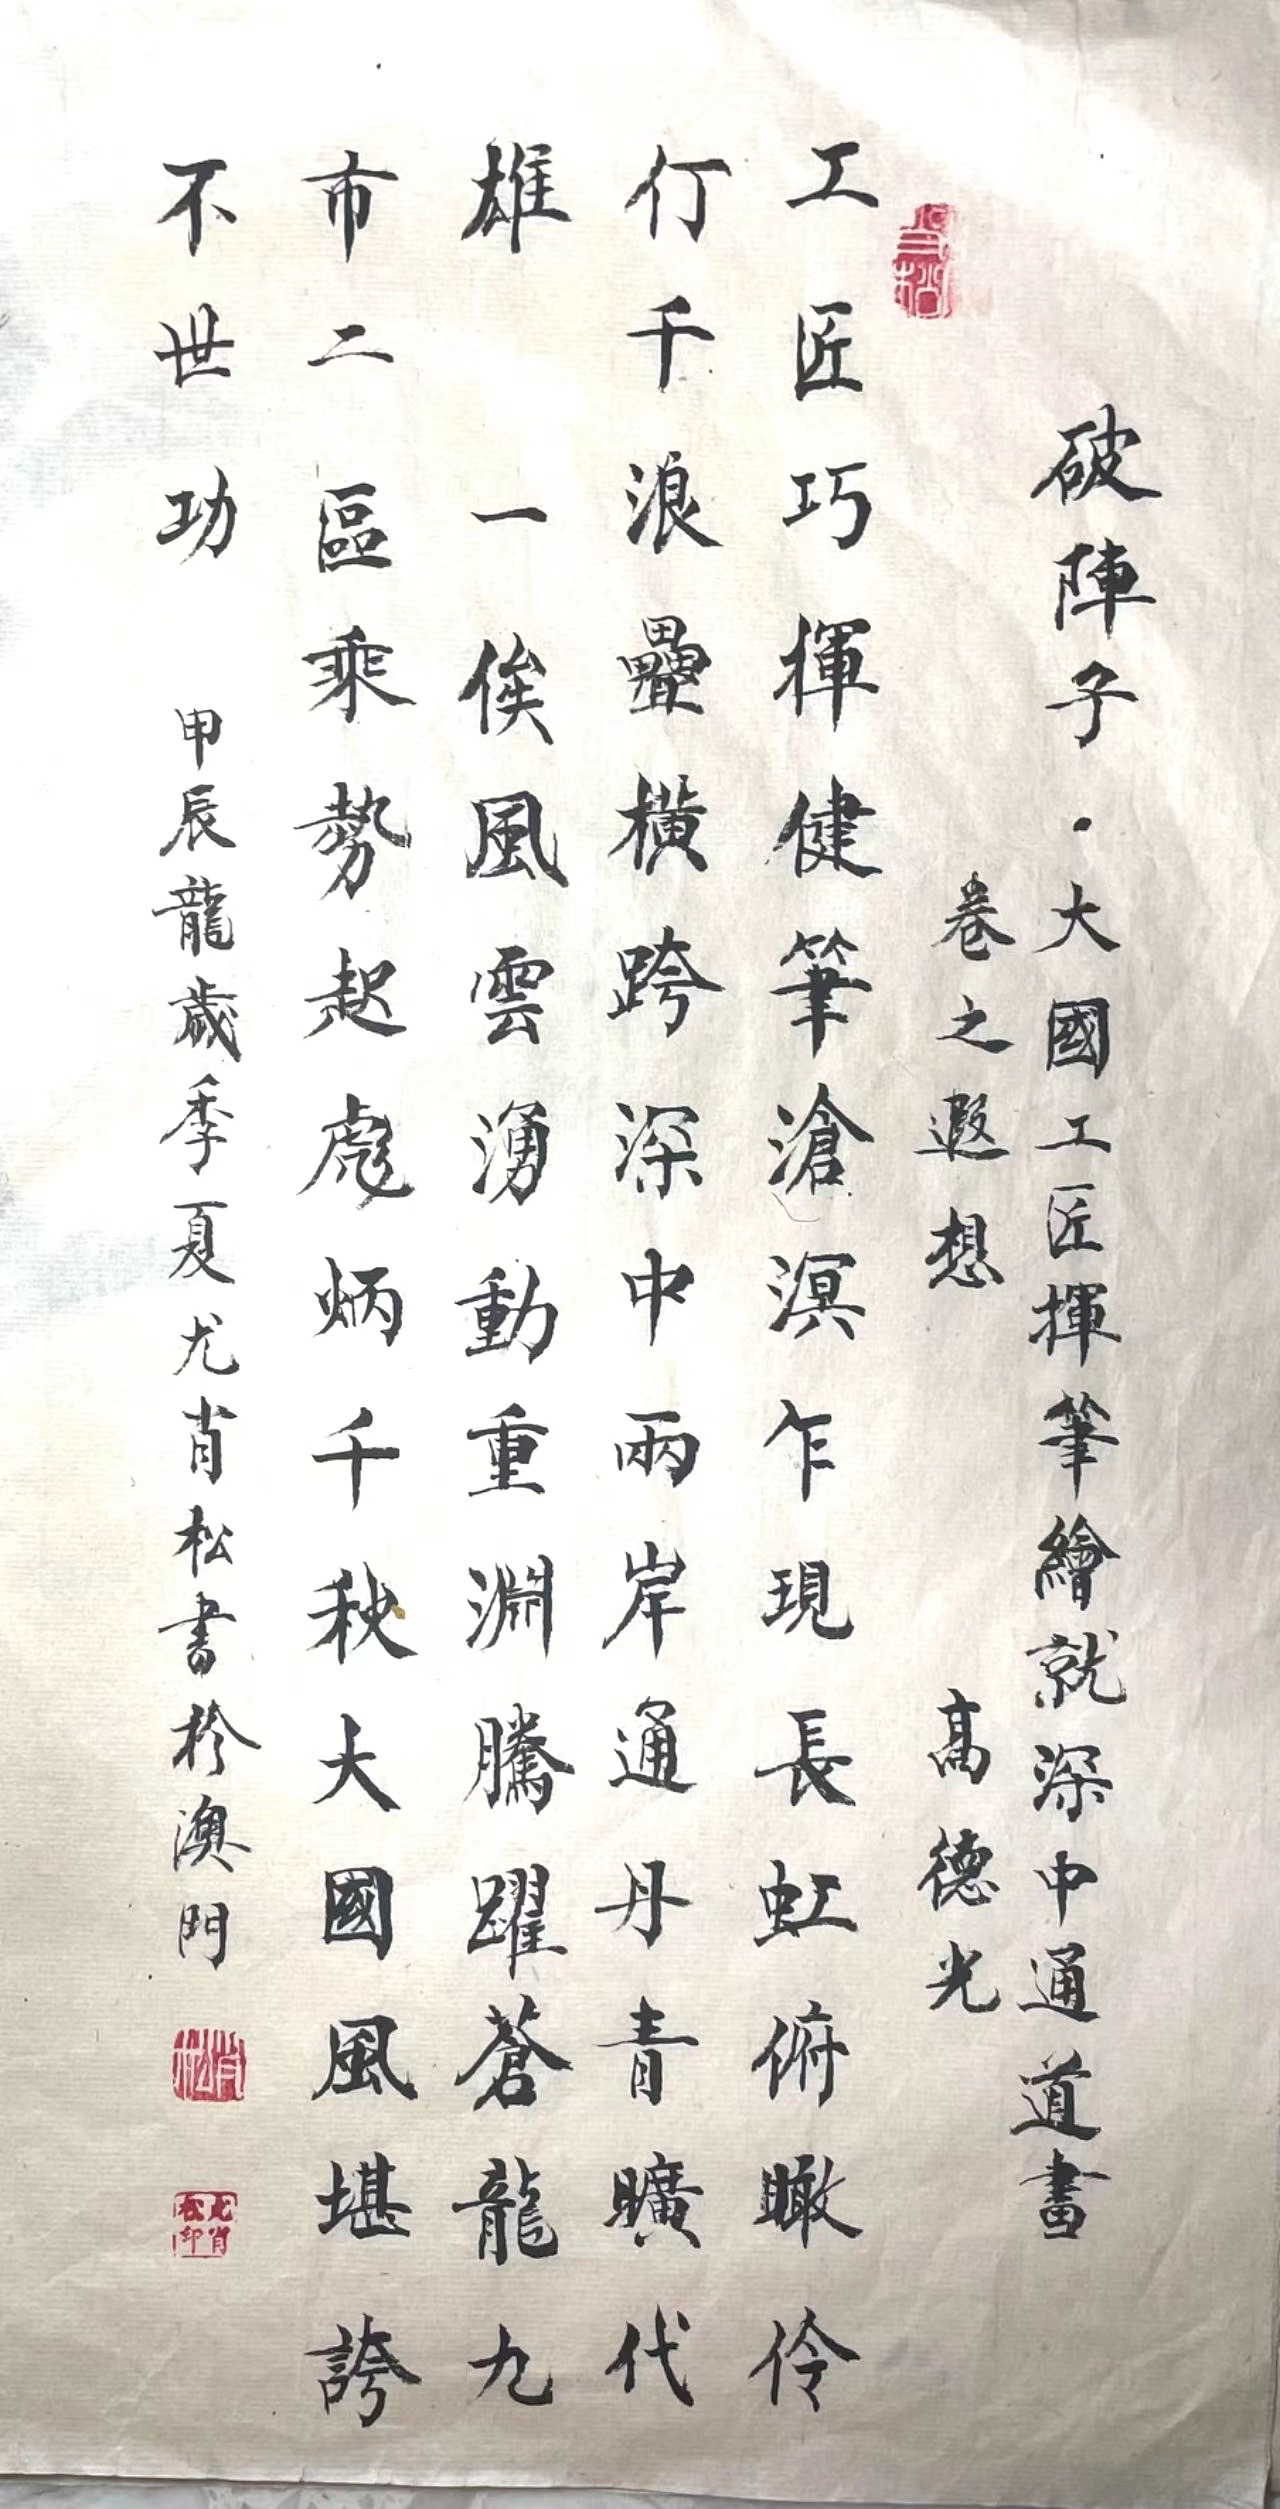 破陣子·大國工匠揮筆繪就深中通道畫
卷之遐想 高德光
肖松
工匠巧揮健筆滄溟乍現長虹俯瞰伶
仃千浪疊橫跨深中兩岸通丹青曠代
雄 一俟風雲湧動重淵騰躍蒼龍九
市二區乘勢起彪炳千秋大國風堪誇
不世功 甲辰龍歲季夏尤肖松書於澳門
肖松
尤肖松印